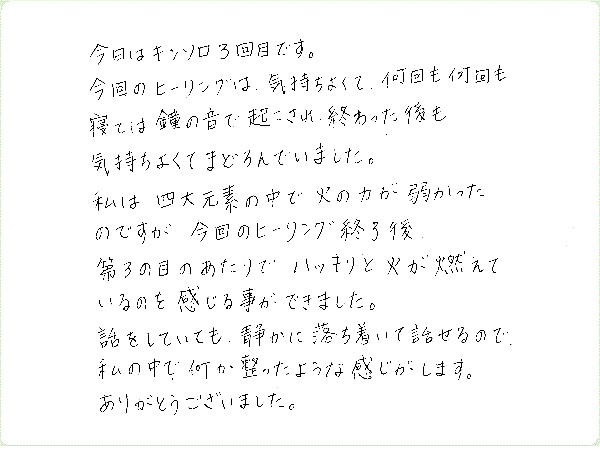 今日はキンソロ3回目です。
今回のヒーリングは、気持ちよくて、何回も何回も
寝ては鐘の音で起こされ、終わった後も
気持ちよくてまどろんでいました。
私は 四大元素の中で 火の力が 弱かった
のですが 今回のヒーリング終了後、
第3の目のあたりで ハッキリと 火が燃えて
いるのを 感じる事ができました。
話をしていても、静かに落ち着いて話せるので、
私の中で 何か整ったような感じがします。
ありがとうございました。